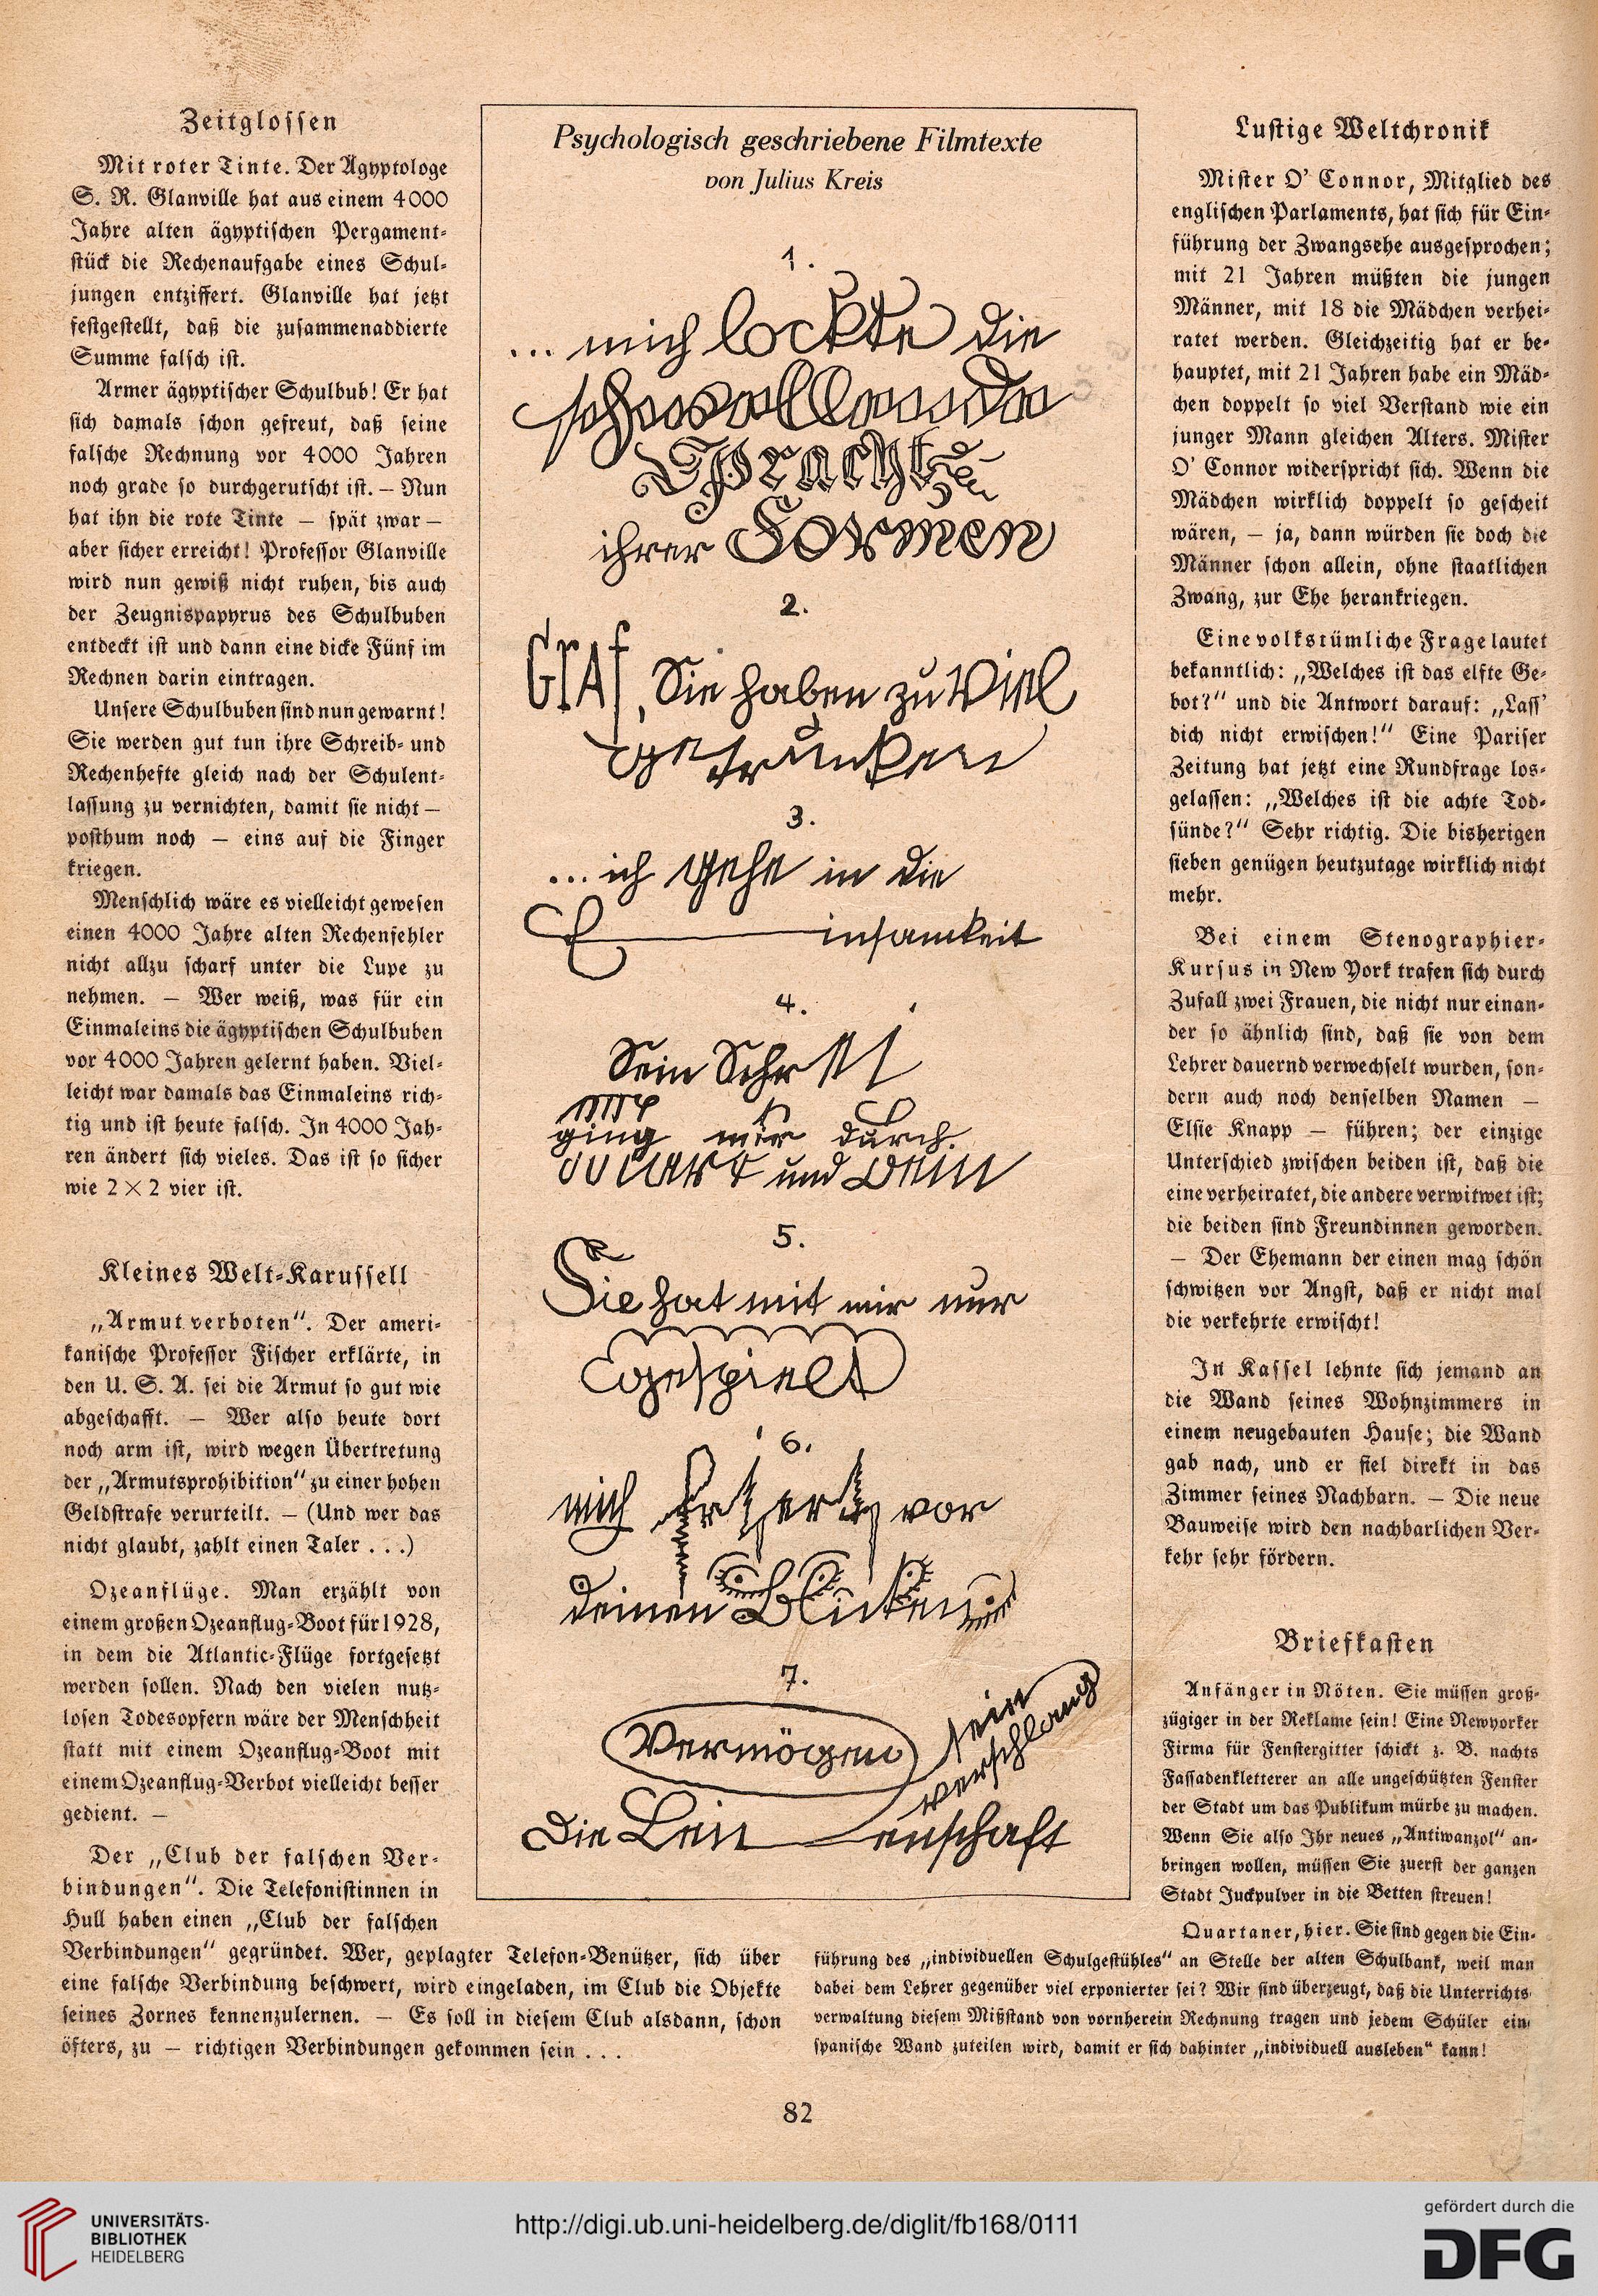 Zeitglossen
Mit roter Tinte. Der Ägyptologe
S. R. Glanville hat aus einem 4000
Jahre alten ägyptischen Pergament-
stück die Rechenaufgabe eines Schul-
jungen entziffert. Glanville hat jetzt
festgestellt, daß die zusammenaddierte
Summe falsch ist.
Armer ägyptischer Schulbub! Er hat
sich damals schon gefreut, daß seine
falsche Rechnung vor 4000 Jahren
noch grade so durchgerutscht ist. – Nun
hat ihn die rote Tinte – spät zwar –
aber sicher erreicht! Professor Glanville
wird nun gewiß nicht ruhen, bis auch
der Zeugnispapyrus des Schulbuben
entdeckt ist und dann eine dicke Fünf im
Rechnen darin eintragen.
Unsere Schulbuben sind nun gewarnt!
Sie werden gut tun ihre Schreib- und
Rechenhefte gleich nach der Schulent-
lassung zu vernichten, damit sie nicht –
posthum noch – eins auf die Finger
kriegen.
Menschlich wäre es vielleicht gewesen
einen 4000 Jahre alten Rechenfehler
nicht allzu scharf unter die Lupe zu
nehmen. – Wer weiß, was für ein
Einmaleins die ägyptischen Schulbuben
vor 4000 Jahren gelernt haben. Viel-
leicht war damals das Einmaleins rich-
tig und ist heute falsch. In 4000 Jah-
ren ändert sich vieles. Das ist so sicher
wie 2 × 2 vier ist.
Kleines Welt-Karussell
„Armut verboten“. Der ameri-
kanische Professor Fischer erklärte, in
den U. S. A. sei die Armut so gut wie
abgeschafft. – Wer also heute dort
noch arm ist, wird wegen Übertretung
der „Armutsprohibition“ zu einer hohen
Geldstrafe verurteilt. – (Und wer das
nicht glaubt, zahlt einen Taler . . .)
Ozeanflüge. Man erzählt von
einem großen Ozeanflug-Boot für 1928,
in dem die Atlantic-Flüge fortgesetzt
werden sollen. Nach den vielen nutz-
losen Todesopfern wäre der Menschheit
statt mit einem Ozeanflug-Boot mit
einem Ozeanflug-Verbot vielleicht besser
gedient. –
Der „Club der falschen Ver-
bindungen“. Die Telefonistinnen in
Hull haben einen „Club der falschen
Verbindungen“ gegründet. Wer, geplagter Telefon-Benützer, sich über
eine falsche Verbindung beschwert, wird eingeladen, im Club die Objekte
seines Zornes kennenzulernen. – Es soll in diesem Club alsdann, schon
öfters, zu – richtigen Verbindungen gekommen sein . . .
Psychologisch geschriebene Filmtexte
von Julius Kreis
1.
... mich lockte die
schwellende
Pracht
ihrer Formen
2.
Graf, Sie haben zu viel
getrunken
3.
... ich gehe in die
Einsamkeit
4.
Sein Schrei
ging mir durch
Mark und Bein
5.
Sie hat mit mir nur
gespielt
6.
mich fröstelt vor
deinen Blicken
7.
Die Leidenschaft
verschlang
sein
Vermögen
Lustige Weltchronik
Mister O’ Connor, Mitglied des
englischen Parlaments, hat sich für Ein-
führung der Zwangsehe ausgesprochen;
mit 21 Jahren müßten die jungen
Männer, mit 18 die Mädchen verhei-
ratet werden. Gleichzeitig hat er be-
hauptet, mit 21 Jahren habe ein Mäd-
chen doppelt so viel Verstand wie ein
junger Mann gleichen Alters. Mister
O’ Connor widerspricht sich. Wenn die
Mädchen wirklich doppelt so gescheit
wären, – ja, dann würden sie doch die
Männer schon allein, ohne staatlichen
Zwang, zur Ehe herankriegen.
Eine volkstümliche Frage lautet
bekanntlich: „Welches ist das elfte Ge-
bot?“ und die Antwort darauf: „Lass’
dich nicht erwischen!“ Eine Pariser
Zeitung hat jetzt eine Rundfrage los-
gelassen: „Welches ist die achte Tod-
sünde?“ Sehr richtig. Die bisherigen
sieben genügen heutzutage wirklich nicht
mehr.
Bei einem Stenographier-
Kursus in New York trafen sich durch
Zufall zwei Frauen, die nicht nur einan-
der so ähnlich sind, daß sie von dem
Lehrer dauernd verwechselt wurden, son-
dern auch noch denselben Namen –
Elsie Knapp – führen; der einzige
Unterschied zwischen beiden ist, daß die
eine verheiratet, die andere verwitwet ist;
die beiden sind Freundinnen geworden.
– Der Ehemann der einen mag schön
schwitzen vor Angst, daß er nicht mal
die verkehrte erwischt!
In Kassel lehnte sich jemand an
die Wand seines Wohnzimmers in
einem neugebauten Hause; die Wand
gab nach, und er fiel direkt in das
Zimmer seines Nachbarn. – Die neue
Bauweise wird den nachbarlichen Ver-
kehr sehr fördern.
Briefkasten
Anfänger in Nöten. Sie müssen groß-
zügiger in der Reklame sein! Eine Newyorker
Firma für Fenstergitter schickt z. B. nachts
Fassadenkletterer an alle ungeschützten Fenster
der Stadt um das Publikum mürbe zu machen.
Wenn Sie also Ihr neues „Antiwanzol“ an-
bringen wollen, müssen Sie zuerst der ganzen
Stadt Juckpulver in die Betten streuen!
Quartaner, hier. Sie sind gegen die Ein-
führung des „individuellen Schulgestühles“ an Stelle der alten Schulbank, weil man
dabei dem Lehrer gegenüber viel exponierter sei? Wir sind überzeugt, daß die Unterrichts-
verwaltung diesem Mißstand von vornherein Rechnung tragen und jedem Schüler eine
spanische Wand zuteilen wird, damit er sich dahinter „individuell ausleben“ kann!
82
UNIVERSITÄTS-
BIBLIOTHEK
HEIDELBERG
http://digi.ub.uni-heidelberg.de/diglit/fb168/0111
gefördert durch die
DFG